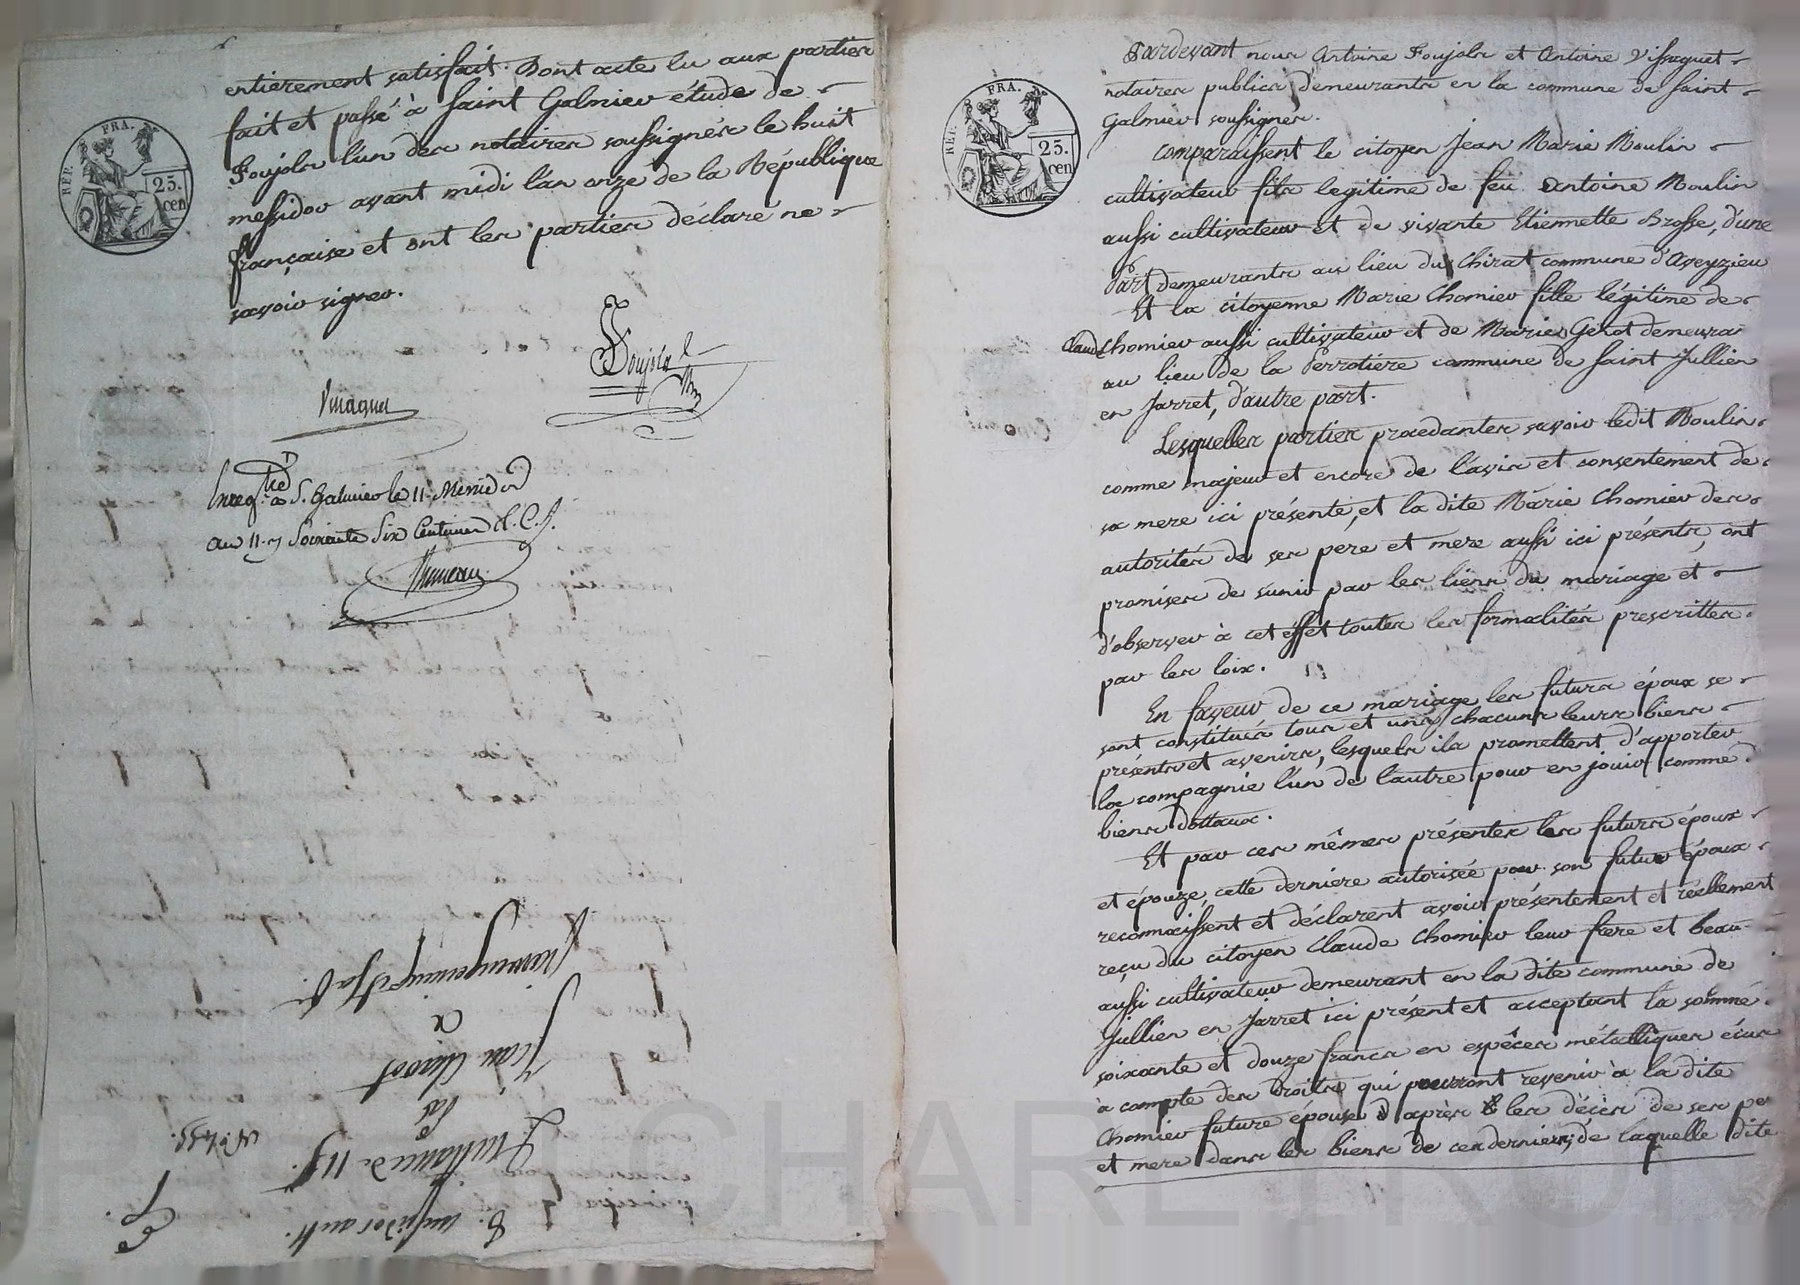 entierement satisfait. Dont acte lu aux parties
fait et passé à saint Galmier étude de
Foujols l'un des notaires soussignés le huit
messidor avant midi l'an onze de la République
française et ont les parties déclaré ne
savoir signer.
REP. FRA.
25.
cen
Foujols
Enregtré à S. Galmier le 11 Messidor
an 11. Soixante Six Centimes
8. messidor an 11.
Quittance de
par
Jean
à
REP. FRA.
25.
cen
Pardevant nous Antoine Foujols et Antoine Vissaguet
notaires publics demeurants en la commune de saint
Galmier soussignés.
comparaissent le citoyen Jean Marie Moulin
cultivateur fils legitime de feu Antoine Moulin
aussi cultivateur et de vivante Etiennette Brosse, d'une
part demeurants au lieu du Chirat commune d'Aveyzieu
Et la citoyenne Marie Chomier fille légitime de
Claude Chomier aussi cultivateur et de Marie Gerot demeura
au lieu de la Perrotiere commune de saint Jullien
en Jarret, d'autre part.
Lesquelles parties procedantes savoir ledit Moulin
comme majeur et encore de l'avis et consentement de
sa mere ici présente, et la dite Marie Chomier des
autorités de ses pere et mere aussi ici présents, ont
promises de s'unir par les liens du mariage et
d'observer à cet éffet toutes les formalités prescrittes
par les loix.
En faveur de ce mariage les futurs époux se
sont constitués tous et uns chacuns leurs biens
présents et avenirs, lesquels ils promettent d'apporter
la compagnie l'un de l'autre pour en jouir comme d
biens dottaux.
Et par ces mêmes présentes les futurs époux
et épouze, cette derniere autorisée pour son futur époux
reconnaissent et déclarent avoir présentement et réellement
reçu du citoyen Claude Chomier leur frere et beau
aussi cultivateur demeurant en la dite commune de
Jullien en Jarret ici présent et acceptant la somme
soixante et douze francs en espêces métalliques écus
à compte des droits qui pourront revenir à la dite
Chomier future épouse après les décès de ses pe
et mere dans les biens de ces derniers, de laquelle dite